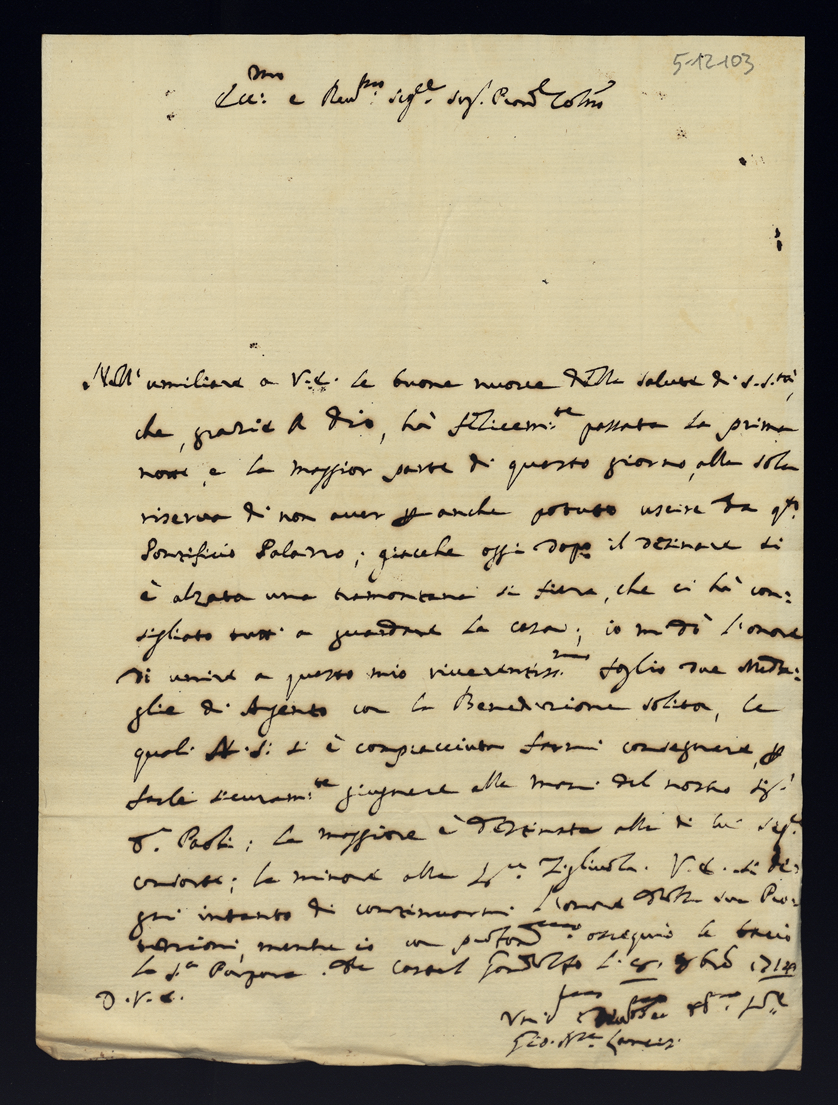 5-12-103
Ecc:mo e Rev:mo Sig.re Sig. Pron. Colmo
Nell' umiliare a V. E. le buone nuove della salute di S. S.tà,
che, grazie a Dio, hà felicem:te passata la prima
notte, e la maggior parte di questo giorno, alla sola
riserva di non aver p anche potuto uscire da q.to
Pontificio Palazzo; giacche oggi dopo il desinare si
è alzata una tramontana sì fiera, che ci hà con:
sigliato tutti a guardare la casa; io mi dò l'onore
di unire a questo mio riverentiss:mo foglio due Meda:
glie di Argento con la Benedizione solita, le
quali N. S. si è compiacciuta farmi consegnare, p
farle sicuram:te giugnere alle mani del nostro Sig.r
D.r Paoli; la maggiore è destinata alla di lui Sig.ra
consorte; la minore alla Figliuola. V. E. si de:
gni intanto di continuarmi l'onore della sua Pro:
tezzione, mentre io con profond:mo ossequio le bacio
la S.a Porpora. Da Castel Gandolfo
D. V. E.
Gio. M.a Lancisi